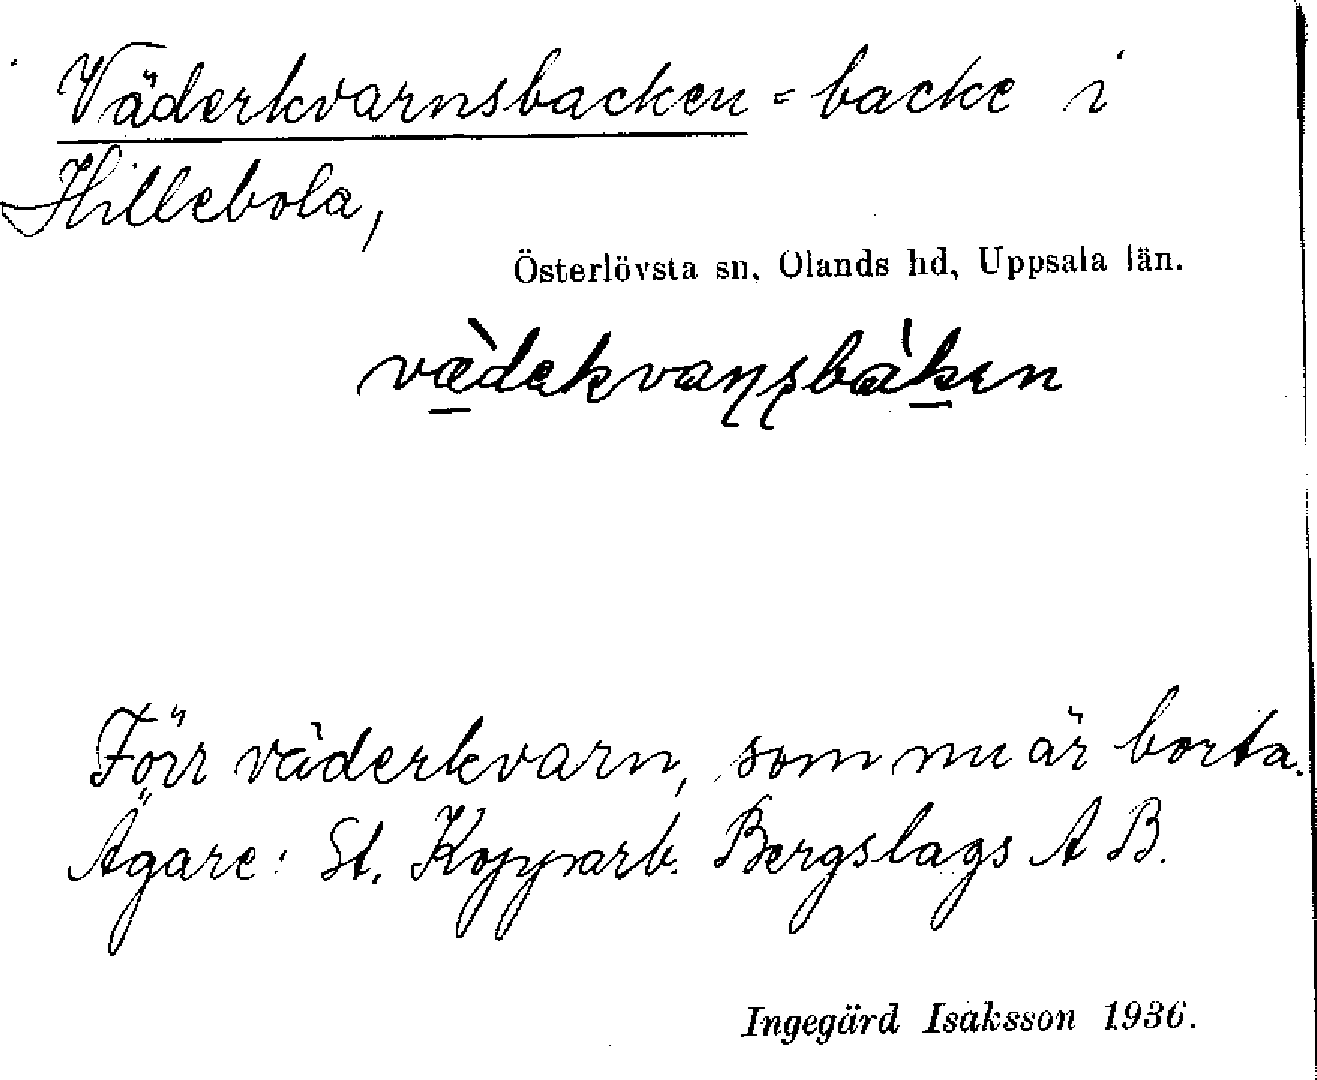 Väderkvarnsbacken = backe i
Hillebola,
Österlövsta sn, Olands hd, Uppsala län.
Förr väderkvarn, som nu är borta.
Ägare: St. Kopparb. Bergslags A B.
Ingegärd Isaksson 1936.